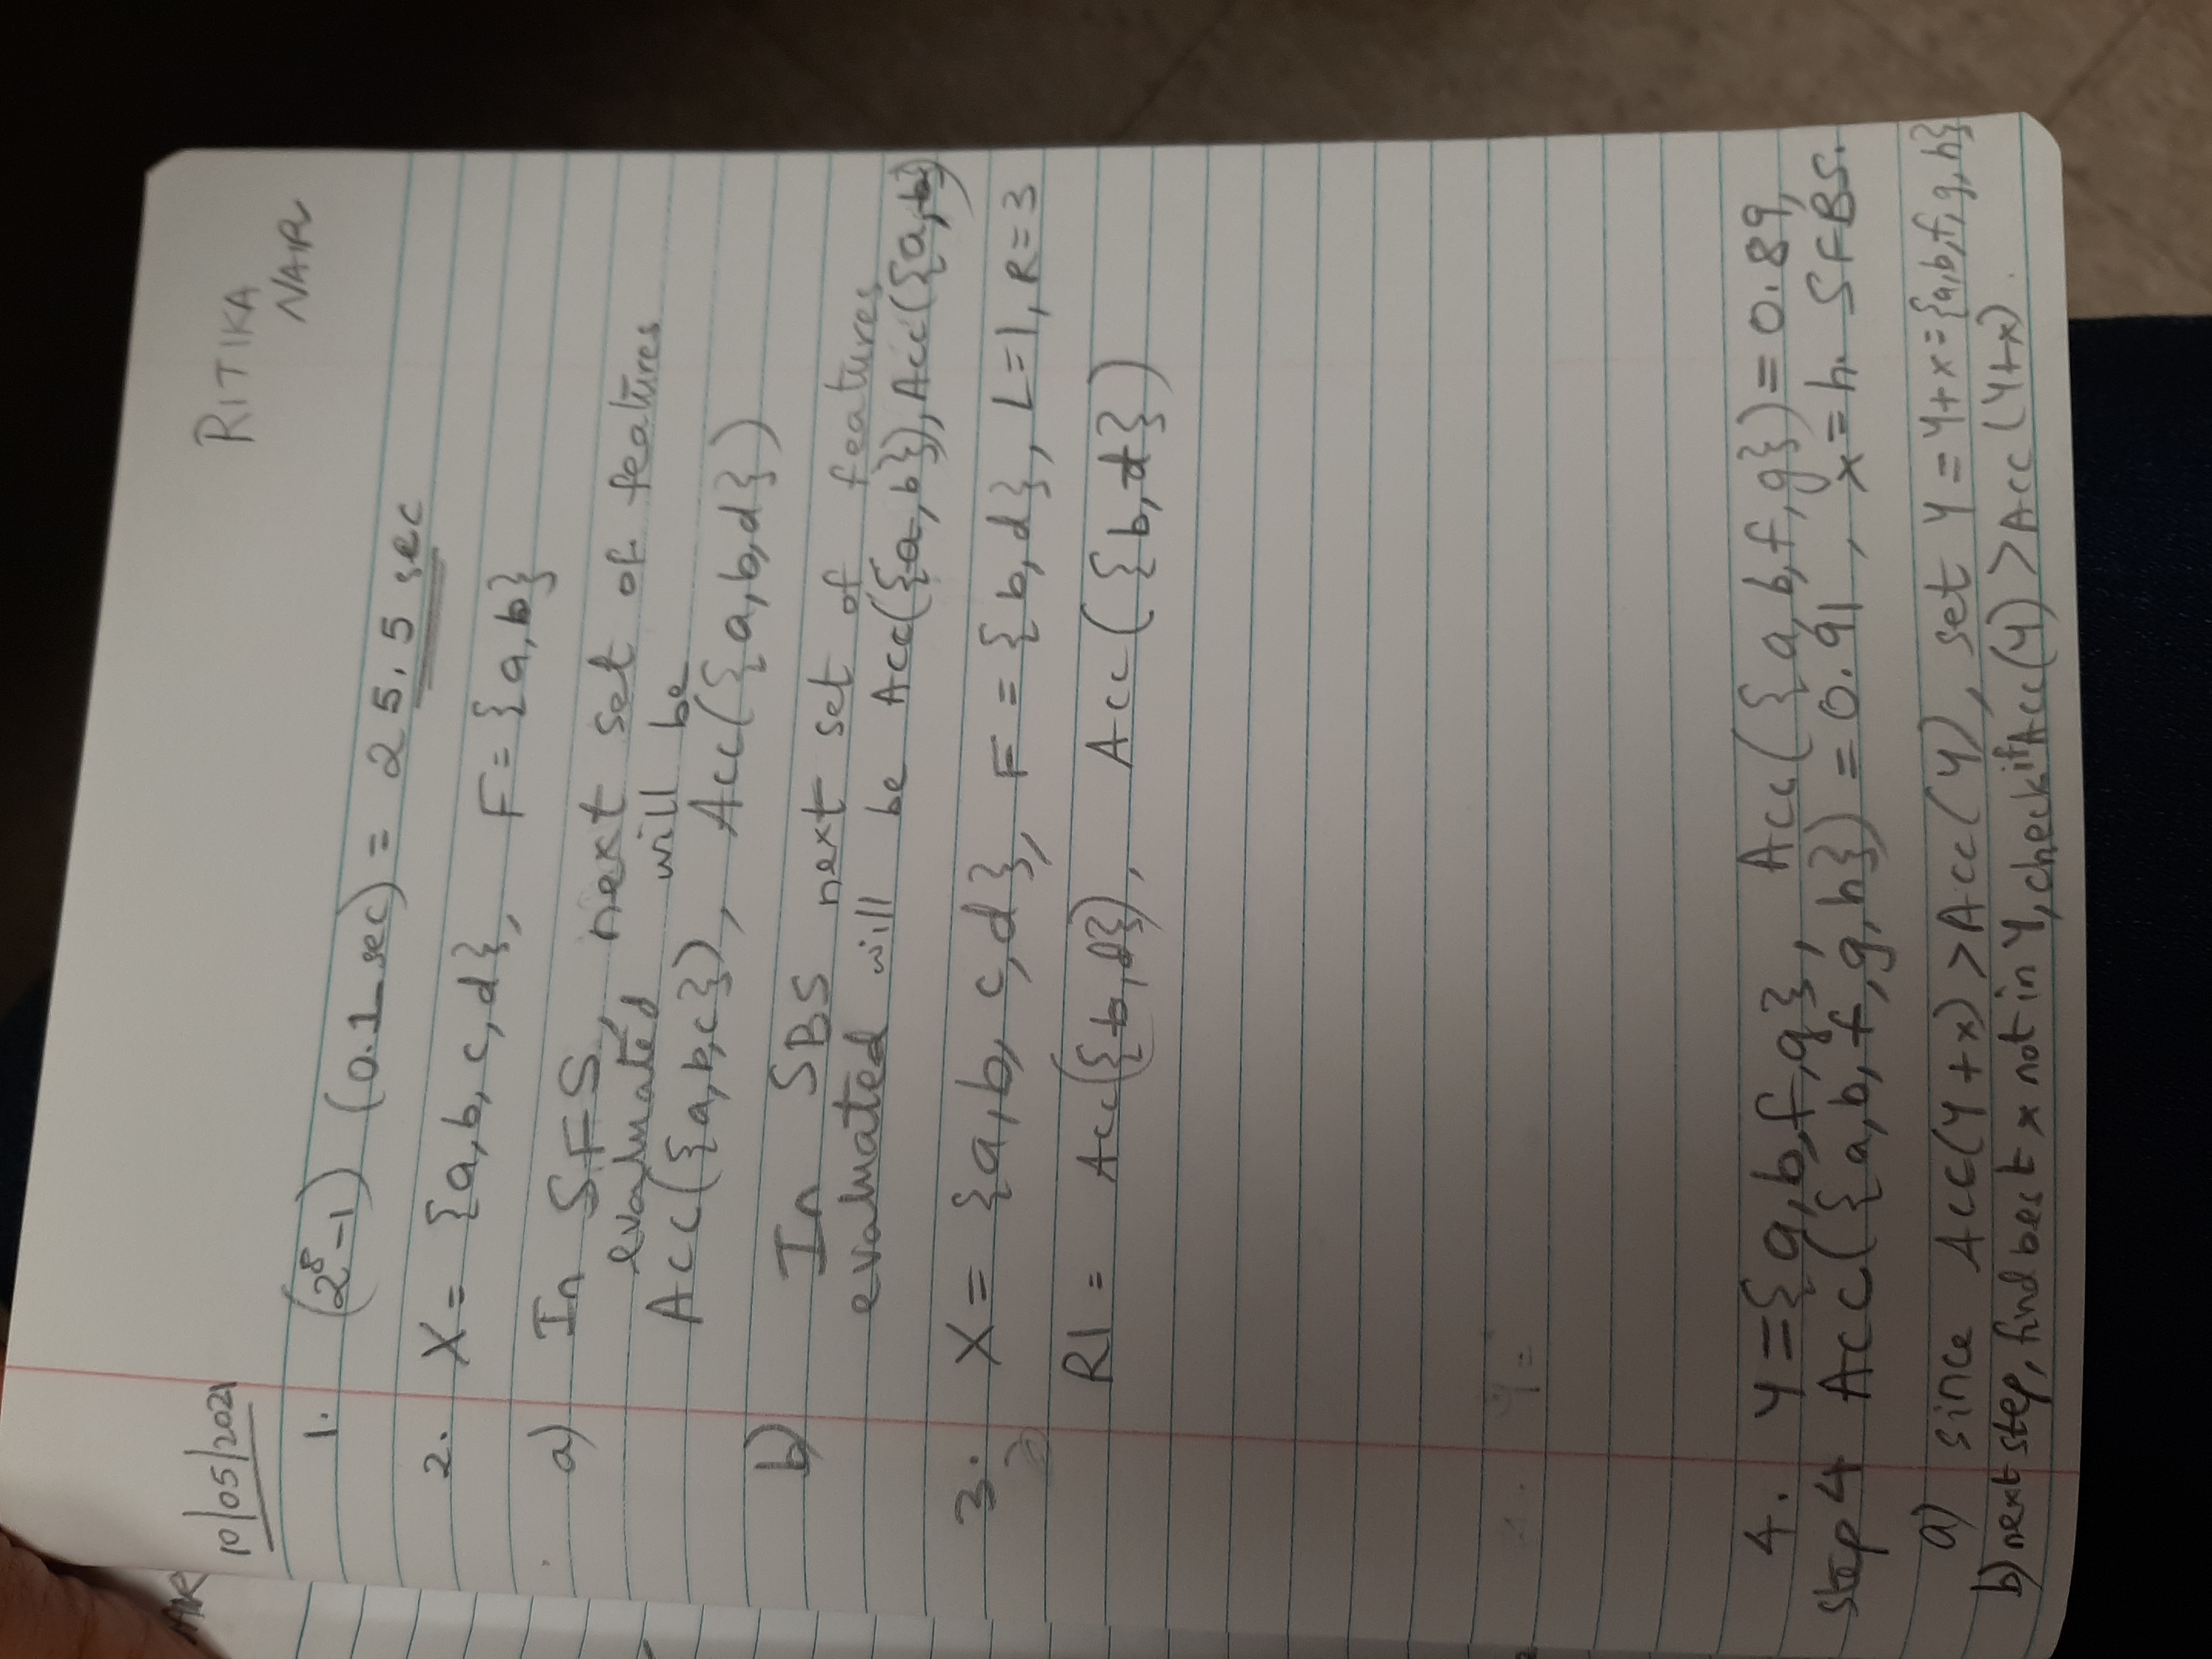 10/05/2021
RITIKA
NAIR
1. (2⁸-1) (0.1 sec) = 25.5 sec
2. X = {a, b, c, d}, F = {a, b}
a) In SFS, next set of features
evaluated will be
Acc({a,b,c}), Acc({a,b,d})
b) In SBS next set of features
evaluated will be Acc({a,b}), Acc({a,b})
3. X = {a,b,c,d}, F = {b,d}, L=1, R=3
R1 = Acc({b,d}), Acc({b,d})
Y =
4. Y={a,b,f,g}, Acc({a,b,f,g})=0.89,
step 4 Acc({a,b,f,g,h}) = 0.91, x=h. SFBS.
a) since Acc(Y+x)>Acc(Y), set Y = Y+x={a,b,f,g,h}
b) next step, find best x not in Y, check if Acc(Y) > Acc(Y+x).